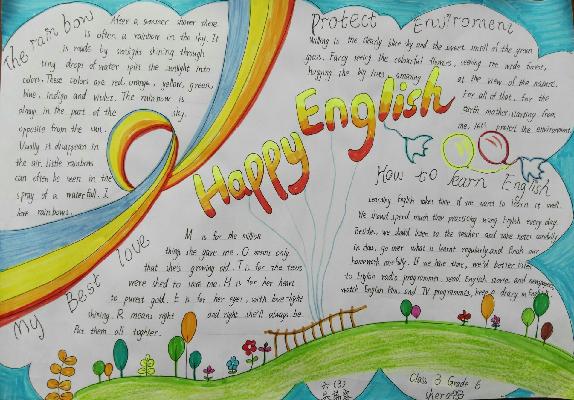 The rainbow
After a summer shower there
is often a rainbow in the sky. It
is made by sunlight shining through
tiny drops of water spilts the sunlight into
colors. These colors are red, orange, yellow, green,
blue, indigo and violet. The rainbow is
always in the part of the sky.
opposite from the sun.
Usually it disappear in
the air. little rainbows
can often be seen in the
spray of a waterfall. I
love rainbows.
Protect Enviroment
is the clearly blue sky and the sweet smell of the green
grass. Fancy seeing the colourful flowers, seeing the wide forest,
hugging the big trees, amazing
at the view of the nature.
For all of that, for the
earth mother, starting from
me, let's protect the environment
Happy English
How to learn English
Learning English takes time if we want to learn it well.
We should spend much time practising using English every day.
Besides, we should listen to the teacher and take notes carefully
in class, go over what is learnt regularly and finish our
homework carefully. If we have time, we'd better listen
to English radio programmer, read English stories and newspapers,
watch English films and TV programmes, keep a diary in English.
My Best love
M is for the million
things she gave me. O means only
that she's growing old. T is for the tears
were shed to save me. H is for her heart
to purest gold. E is for her eyes, with love-light
shining. R means right and right she'll always be.
Put them all togther.
Class 3 Grade 6